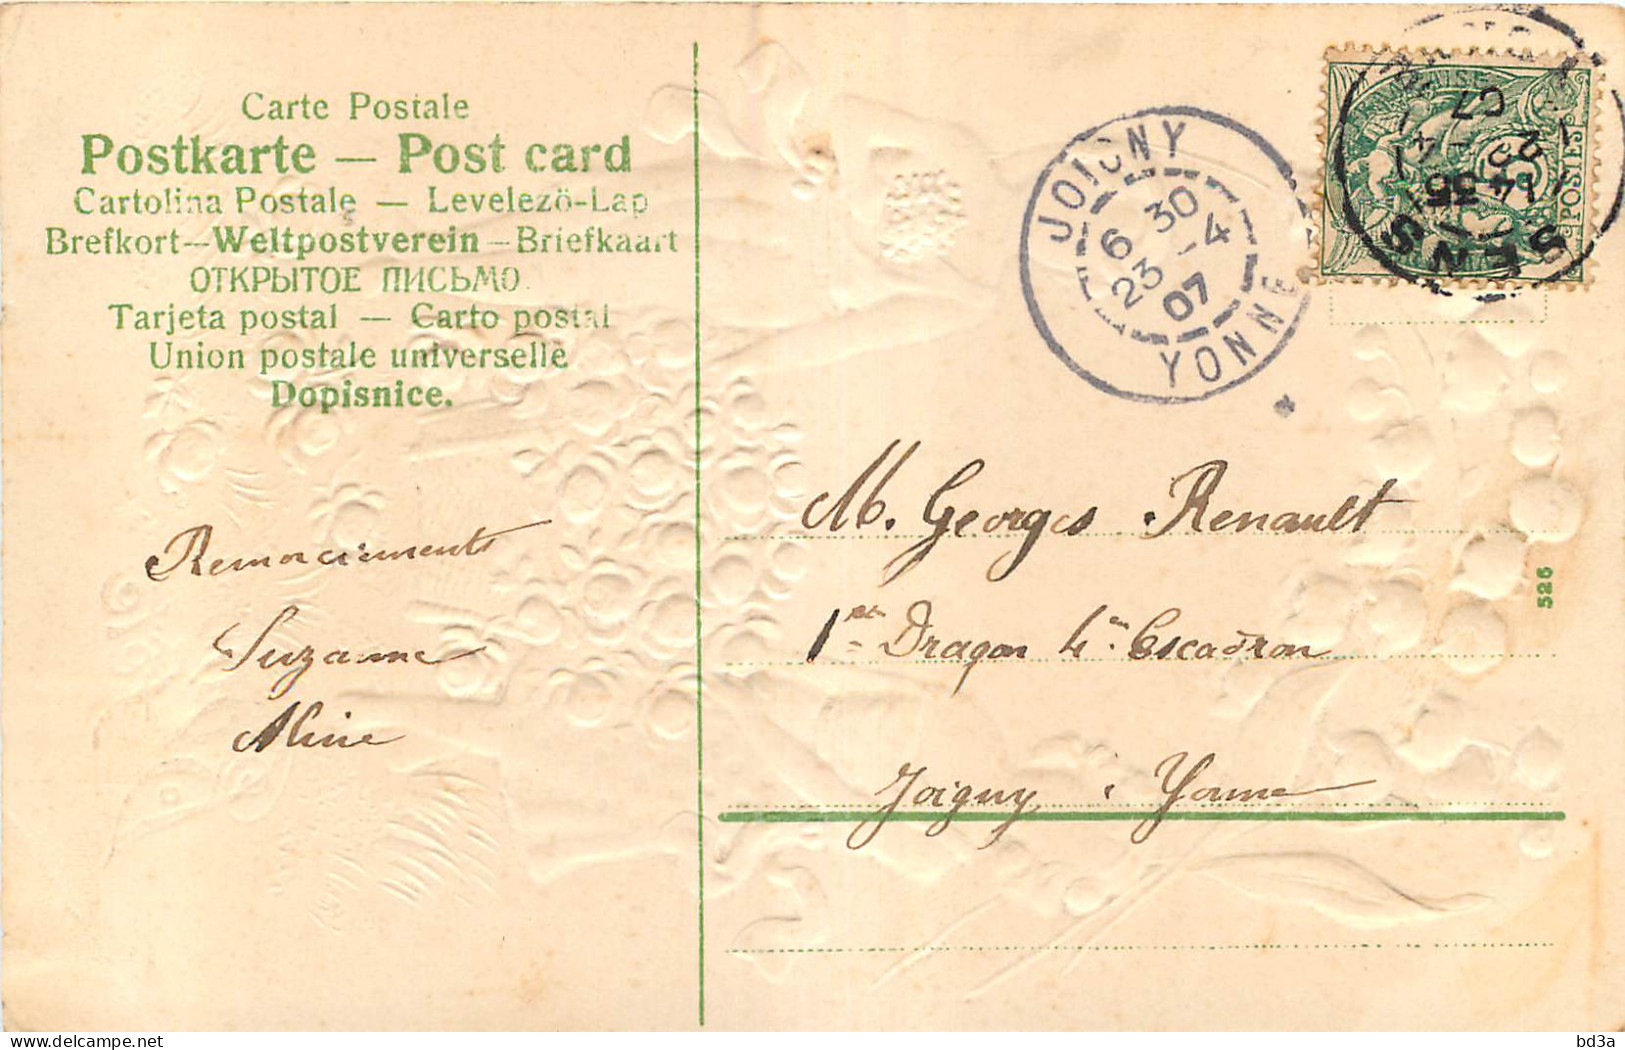 Carte Postale
Postkarte — Post card
Cartolina Postale — Levelezö-Lap
Brefkort--Weltpostverein – Briefkaart
ОТКРЫТОЕ ПИСЬМО.
Tarjeta postal — Carto postal
Union postale universelle
Dopisnice.
Remerciements
Suzanne
Aline
JOIGNY
6 30
23 - 4
07
YONNE
POSTES
SENS
14 35
M. Georges Renault
1er Dragon 4e Escadron
Joigny Yonne
526
bd3a